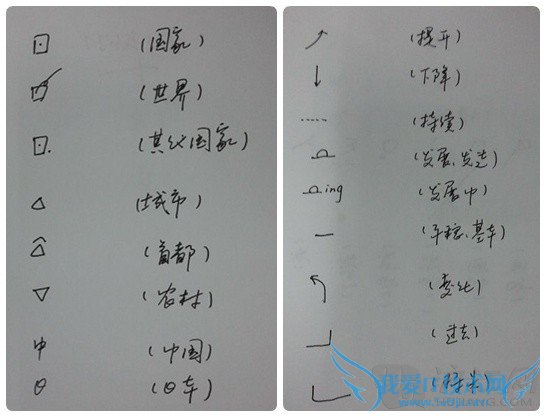 (国家)
(世界)
(其他国家)
(城市)
(首都)
(农村)
中 (中国)
(日本)
(提升)
(下降)
(持续)
(发展、发达)
ing (发展中)
(平稳、基本)
(变化)
(过去)
(将来)